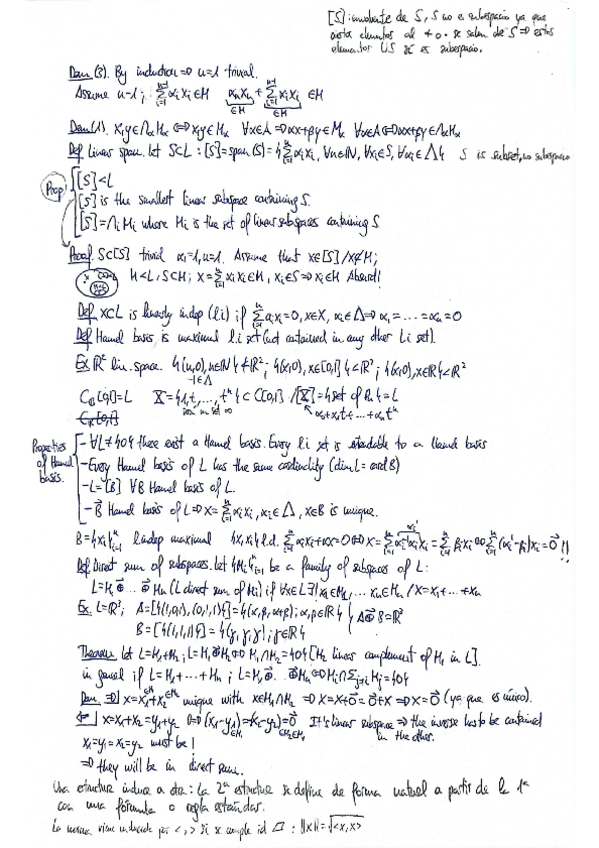 [S]: envolvente de S, S no es subespacio ya que
elementos al + o · se salen de S ⇒ estos
elementos US sí es subespacio.
Dem (3). By induction ⇒ n=1 trivial.
Assume n-1; Σ αi xi ∈ M   αn xn + Σ αi xi ∈ M
∈M   ∈M
Dem (1). x,y ∈ ∩α Mα ⇔ x,y ∈ Mα ∀α∈A ⇒ αx+βy ∈ Mα ∀α∈A ⇔ αx+βy ∈ ∩α Mα
Def Linear span. Let S⊂L : [S]=span(S)={Σ αi xi, ∀n∈ℕ, ∀xi∈S, ∀αi∈Λ}   S is subset, no subespacio
Prop [S]<L
[S] is the smallest linear subspace containing S.
[S]=∩i Mi where Mi is the set of linear subspaces containing S
Proof. S⊂[S] trivial α1=1, n=1. Assume that x∈[S] / x∉M;
M<L, S⊂M; x=Σ αi xi ∈M, xi∈S ⇒ xi∈M Absurd!
Def X⊂L is linearly indep (li) if Σ αi xi=0, xi∈X, αi∈Λ ⇒ α1=...=αn=0
Def Hamel basis is maximal l.i set (not contained in any other l.i set).
Ex ℝ² lin. space. {(n,0), n∈ℕ}≮ℝ²; {(x,0), x∈[0,1]}≮ℝ²; {(x,0), x∈ℝ}<ℝ²
-1∈Λ
C[0,1]=L   X={1,t,...,tⁿ}⊂C[0,1] / [X]={set of Pn}<L
α0+α1t+...+αn tⁿ
Properties of Hamel basis.
- ∀L≠{0} there exist a Hamel basis. Every li set is extendable to a Hamel basis
- Every Hamel basis of L has the same cardinality (dim L = card B)
- L=[B] ∀B Hamel basis of L.
- B Hamel basis of L ⇒ x=Σ αi xi, αi∈Λ, xi∈B is unique.
B={xi} l.indep maximal   {x,xi} l.d. Σ αi xi+αx=0 ⇔ x=Σ αi' xi = Σ βi xi ⇔ Σ(αi'-βi)xi=0 !!
Def Direct sum of subspaces. Let {Mi} be a family of subspaces of L:
L=M1⊕...⊕Mn (L direct sum of Mi) if ∀x∈L ∃! x1∈M1, ... xn∈Mn / x=x1+...+xn
Ex. L=ℝ³; A=[{(1,0,1),(0,1,1)}]={(α,β,α+β); α,β∈ℝ}   A⊕B=ℝ³
B=[{(1,1,1)}]={(γ,γ,γ); γ∈ℝ}
Theorem Let L=M1+M2; L=M1⊕M2 ⇔ M1∩M2={0} [M2 linear complement of M1 in L].
in general if L=M1+...+Mn; L=M1⊕...⊕Mn ⇔ Mi∩Σ Mj={0}
Dem. ⇒| x=x1+x2 unique with x∈M1∩M2 ⇒ x=x+0=0+x ⇒ x=0 (ya que es único).
⇐| x=x1+x2=y1+y2 ⇔ (x1-y1)=(x2-y2)=0   It's linear subspace ⇒ the inverse has to be contained
in the other.
x1=y1=x2=y2 must be!
⇒ they will be in direct sum.
Una estructura induce a otra: La 2ª estructura se define de forma natural a partir de la 1ª
con una fórmula o regla estándar.
La norma viene inducida por <,> si se cumple id ▱ : ‖x‖=√<x,x>